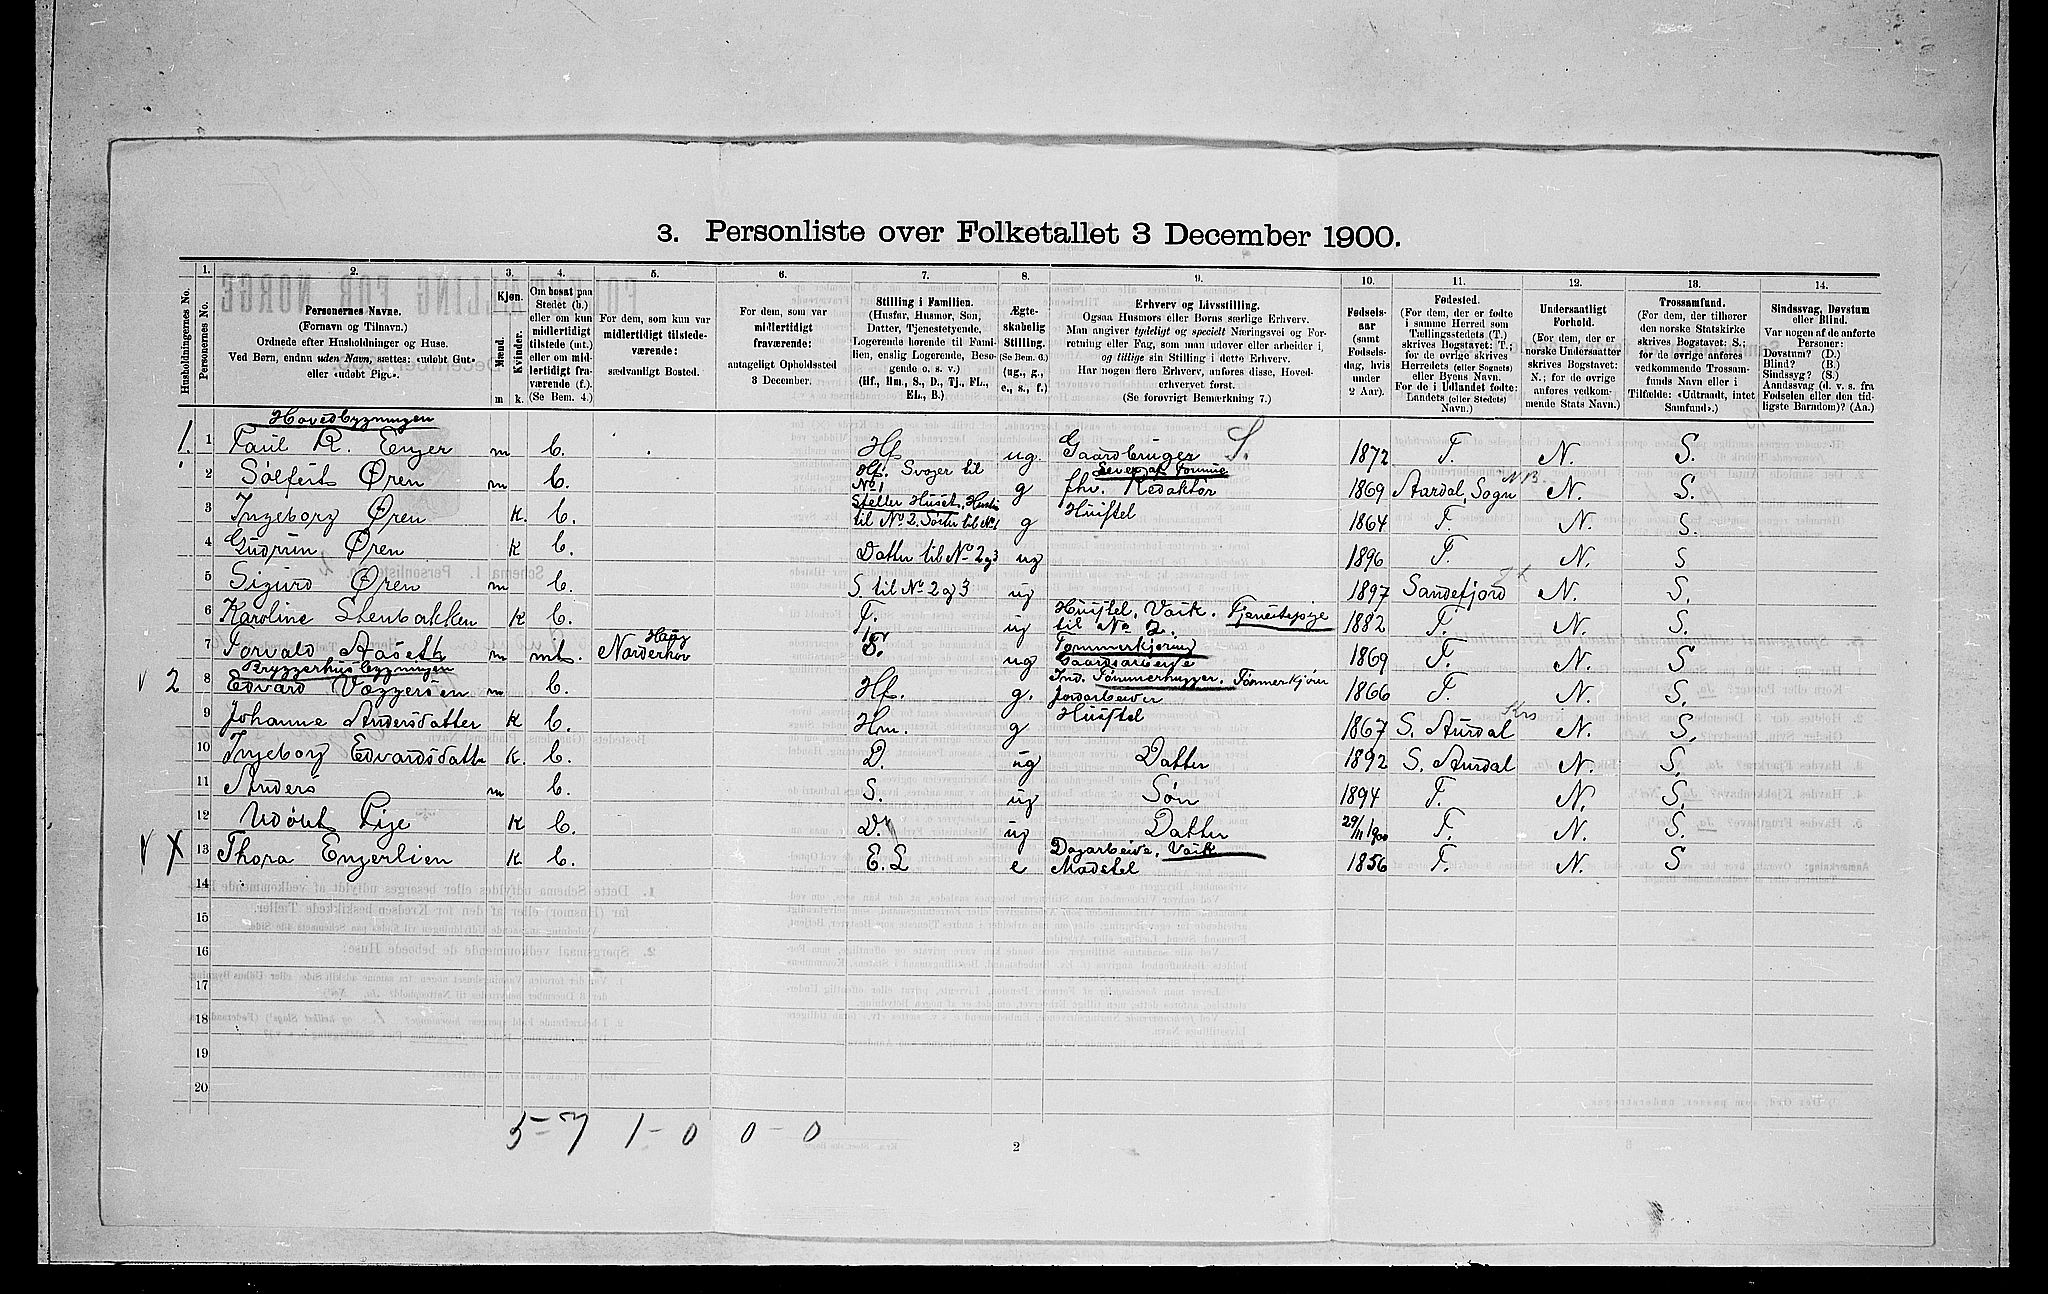 3. Personliste over Folketallet 3 December 1900.
Husholdningernes No.
1. Personernes No.
2. Personernes Navne.
(Fornavn og Tilnavn.)
Ordnede efter Husholdninger og Huse.
Ved Børn, endnu uden Navn, sættes: «udøbt Gut»
eller «udøbt Pige».
3. Kjøn.
Mænd. Kvinder.
m k.
4. Om bosat paa
Stedet (b.)
eller om kun
midlertidigt
tilstede (mt.)
eller om mid-
lertidigt fra-
værende (f.).
(Se Bem. 4.)
5. For dem, som kun var
midlertidigt tilstede-
værende:
sædvanligt Bosted.
6. For dem, som var
midlertidigt
fraværende:
antageligt Opholdssted
3 December.
7. Stilling i Familien.
(Husfar, Husmor, Søn,
Datter, Tjenestetyende,
Logerende hørende til Fami-
lien, enslig Logerende, Besø-
gende o. s. v.)
(Hf., Hm., S., D., Tj., FL.,
EL., B.)
8. Ægte-
skabelig
Stilling.
(Se Bem. 6.)
(ug., g.,
e., s., f.)
9. Erhverv og Livsstilling.
Ogsaa Husmors eller Børns særlige Erhverv.
Man angiver tydeligt og specielt Næringsvei og For-
retning eller Fag, som man udøver eller arbeider i,
og tillige sin Stilling i dette Erhverv.
Har nogen flere Erhverv, anføres disse, Hoved-
erhvervet først.
(Se forøvrigt Bemærkning 7.)
10. Fødsels-
aar
(samt
Fødsels-
dag, hvis
under
2 Aar).
11. Fødested.
(For dem, der er fødte
i samme Herred som
Tællingsstedets (T.)
skrives Bogstavet: T.;
for de øvrige skrives
Herredets (eller Sognets)
eller Byens Navn.
For de i Udlandet fødte:
Landets (eller Stedets)
Navn.)
12. Undersaatligt
Forhold.
(For dem, der er
norske Undersaatter
skrives Bogstavet:
N.; for de øvrige
anføres vedkom-
mende Stats Navn.)
13. Trossamfund.
(For dem, der tilhører
den norske Statskirke
skrives Bogstavet: S.;
for de øvrige anføres
vedkommende Trossam-
funds Navn eller i
Tilfælde: «Udtraadt, intet
Samfund».)
14. Sindssvag, Døvstum
eller Blind.
Var nogen af de anførte
Personer:
Døvstum? (D.)
Blind? (B.)
Sindssyg? (S.)
Aandssvag (d. v. s. fra
Fødselen eller den tid-
ligste Barndom)? (Aa.)
Hovedbygningen
1. 1 Paul R. Enger m b. Hf ug. Gaardbruger S. 1872 T. N. S.
2 Sølfest Øren m b. Hf. Svoger til No 1 g Lever af Formue fhv. Redaktør 1869 Aardal, Sogn NB. N. S.
3 Ingeborg Øren K. b. Steller Huset, til No 2. Søster til No 1 g Husstel 1864 T. N. S.
4 Gudrun Øren K b. Datter til No 2 og 3 ug 1896 T. N. S
5 Sigurd Øren m b. S. til No 2 og 3 ug 1897 Sandefjord N. S.
6 Karoline Stenbakken K b. T. ug Husstel, Vask. Tjenestepige til No 2. 1882 T. N. S.
7 Torvald Aaseth m mt. Haug Norderhov ug Tømmerkjøring Gaardsarbeide 1869 T. N. S
Bryggerhusbygningen
2 8 Edvard Væggersen m b. Hf. g. Ind. Tømmerhugger. Tømmerkjører Jordarbeider 1866 T. N. S.
9 Johanne Andersdatter K b. Hm. g Husstel 1867 S. Aurdal Krs N. S.
10 Ingeborg Edvardsdatter K. b. D. ug Datter 1892 S. Aurdal N. S.
11 Anders m b. S. ug Søn 1894 T. N. S.
12 Udøbt Pige K b. D. ug Datter 29/11 1900 T. N. S.
X 13 Thora Engerlien K b. E. L e Dagarbeide, Vask Madstel 1856 T. N. S
14
15
16
17
18
19
20
5-7 1-0 0-0
2